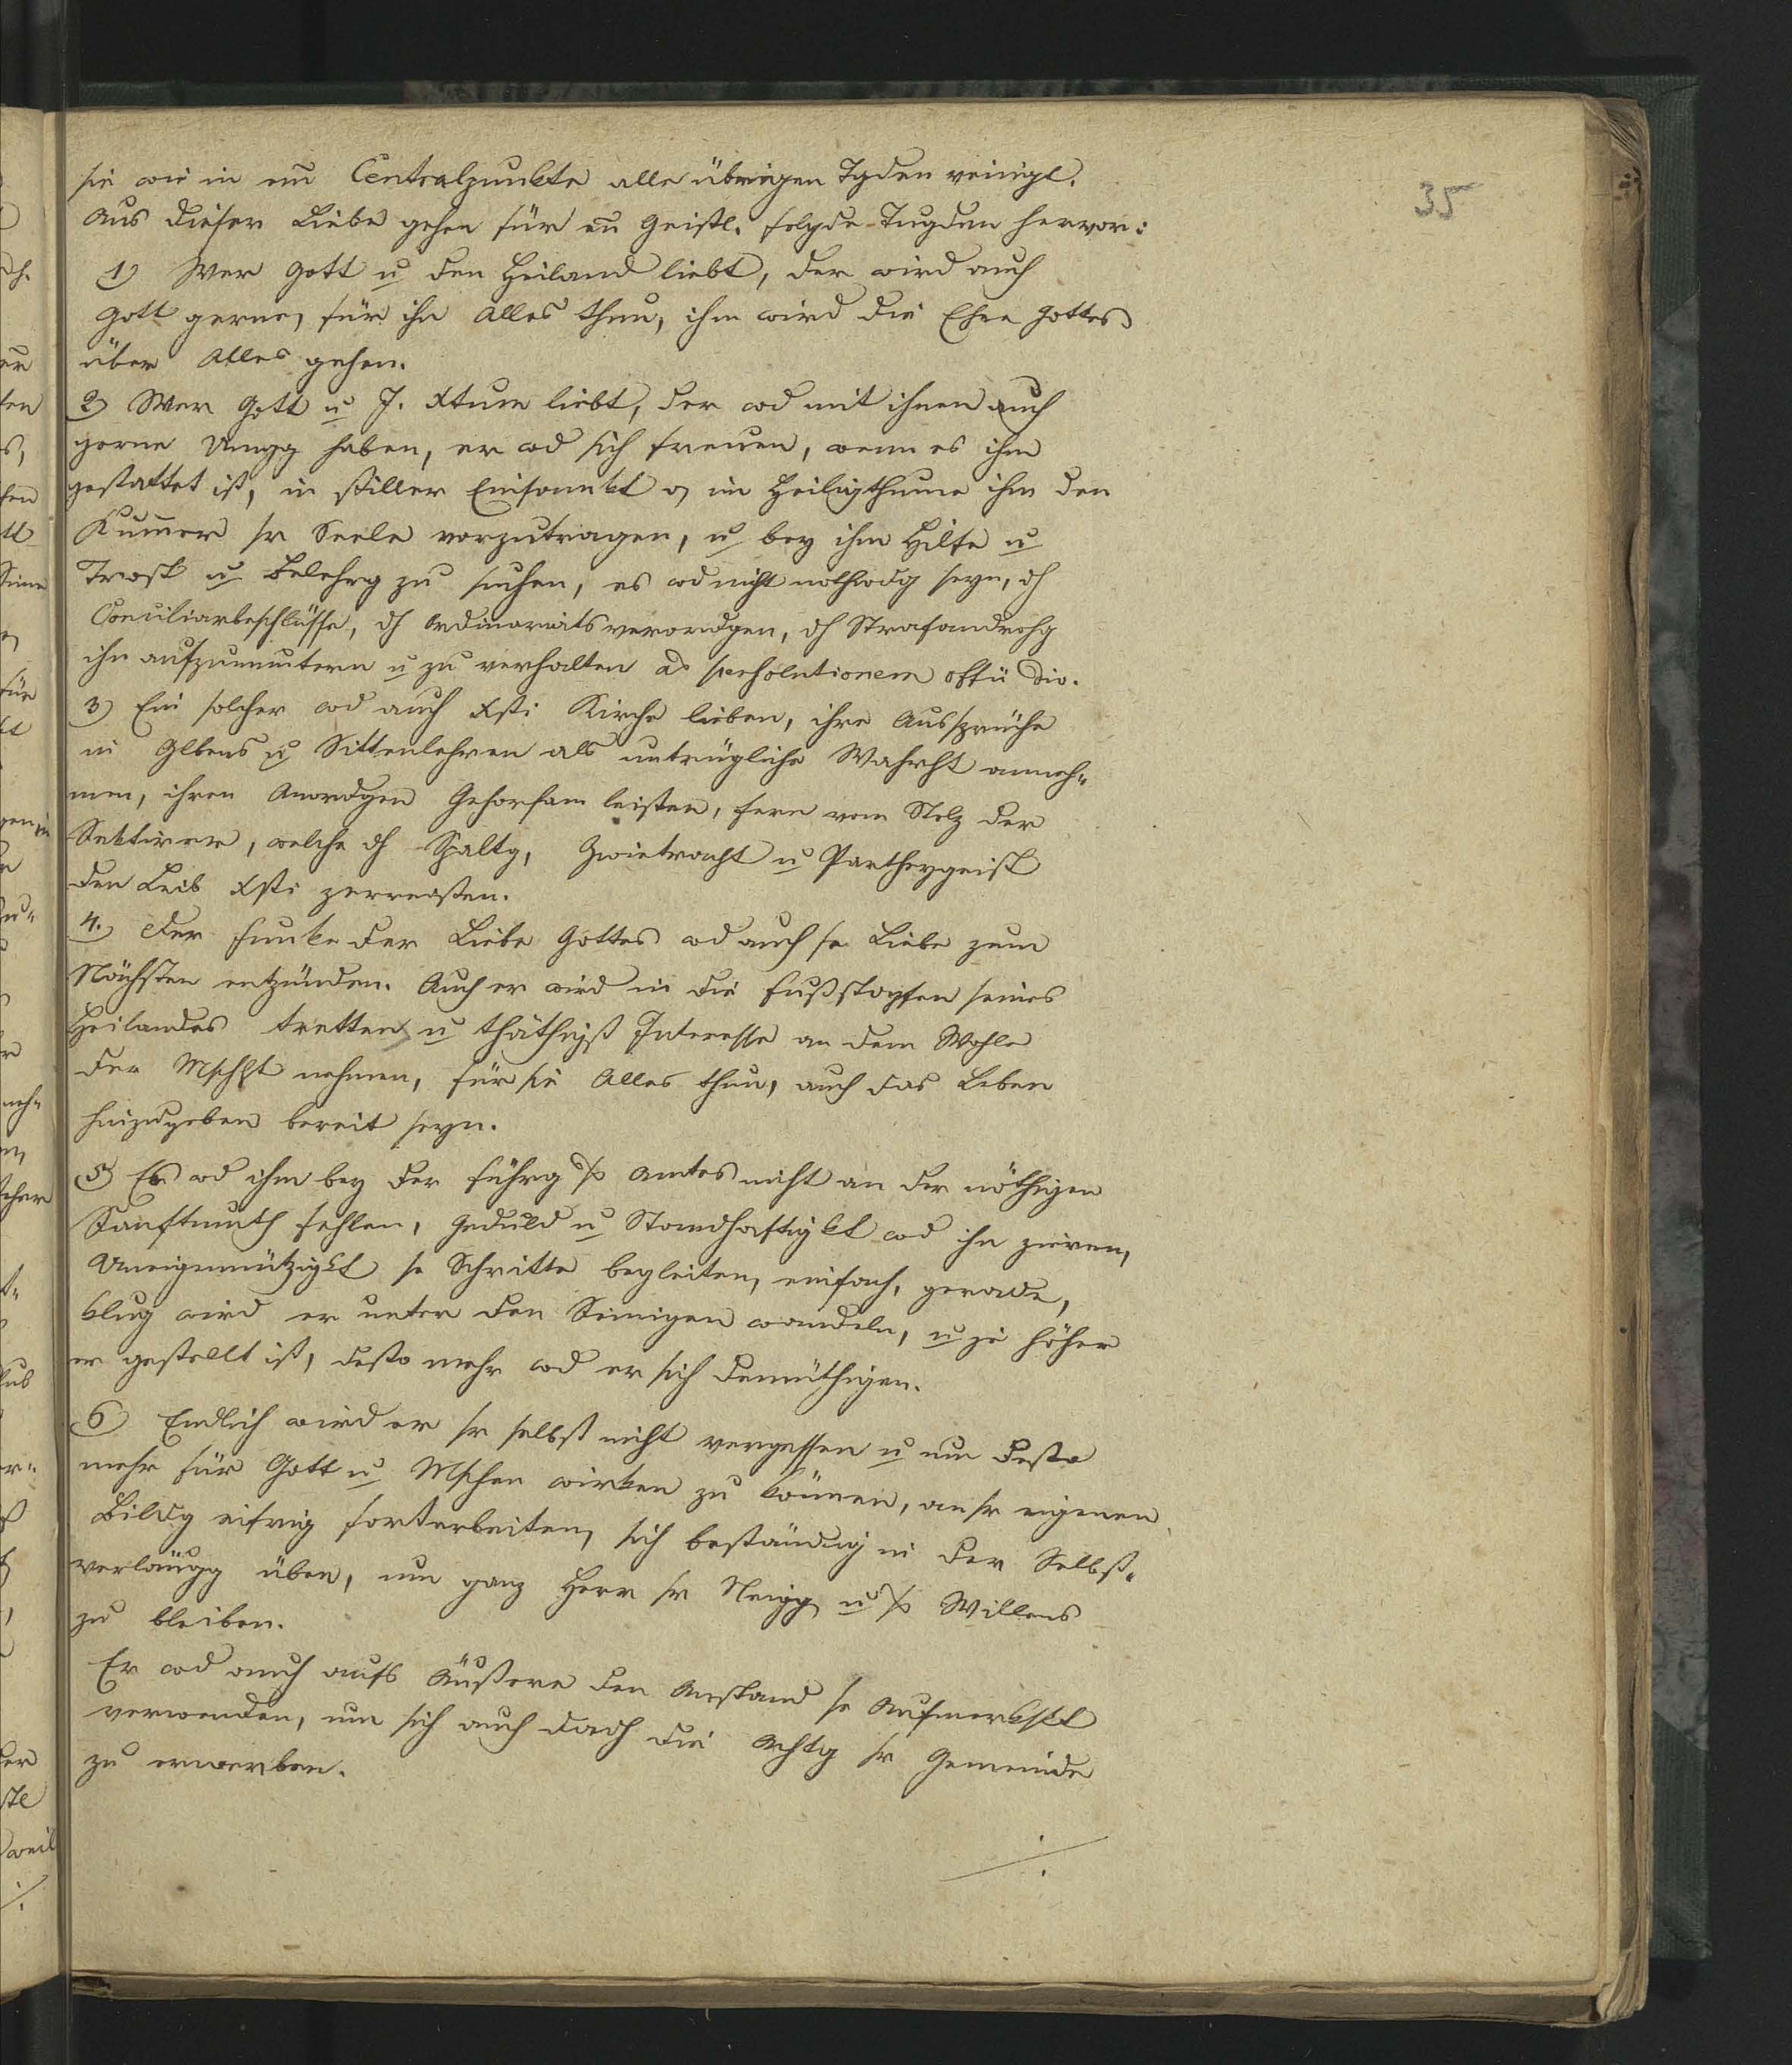 35
sie wie in eīn Centralpunkte alle übrigen Tgden veinigt.
Aus dieser Liebe gehen für eīn Geistl. folgde Tugden hervor:
1) Wer Gott u den Heiland liebt, der wird auch
Gott gerne, für ihn Alles thun, ihm wird die Ehre Gottes
über Alles gehen.
2) Wer Gott u J. Xtum liebt, der wd mit ihnen auch
gerne Umgg haben, er wd sich freuen, wenn es ihm
gestattet ist, in stiller Einsamkt o im Heiligthume ihm den
Kum̄er sr Seele vorzutragen, u bey ihm Hilfe u
Trost u Belehrg zu suchen, es wd nicht nothwdg seyn, dh
Conciliarbeschlüsse, dh Ordinariatsverordgen, dh Strafandrohg
ihn aufzumuntern u zu verhalten ad persolutionem offii div.
3) Ein solcher wd auch Xsti Kirche lieben, ihre Aussprüche
in Glbens u Sittenlehren als untrügliche Wahrht anneh-
men, ihren Anordgen Gehorsam leisten, fern vom Stolz der
Sektirer, welche dh Spaltg, Zwietracht u Partheygeist
den Leib Xsti zerreissen.
4. Der Funke der Liebe Gottes wd auch se Liebe zum
Nächsten entzünden. Auch er wird in die Fußstapfen seines
Heilandes tretten u thäthigst Interesse an dem Wohle
der Mschht nehmen, für sie Alles thun, auch das Leben
hinzugeben bereit seyn.
5) Es wd ihm bey der Führg ss Amtes nicht an der nöthigen
Sanftmuth fehlen, Geduld u Standhaftigkt wd ihn zieren,
Uneigennützigkt se Schritte begleiten, einfach, gerade,
klug wird er unter den Seinigen wandeln, u je höher
er gestellt ist, desto mehr wd er sich demüthigen.
6) Endlich wird er sr selbst nicht vergessen u um desto
mehr für Gott u Mschen wirken zu können, an sr eigenen
Bildg eifrig fortarbeiten, sich beständig in der Selbst-
verläugg üben, um ganz Herr sr Neigg u ss Willens
zu bleiben.
Er wd auch aufs Äußere den Anstand se Aufmerkskt
verwenden, um sich auch dadh die Achtg sr Gemeinde
zu erwerben.